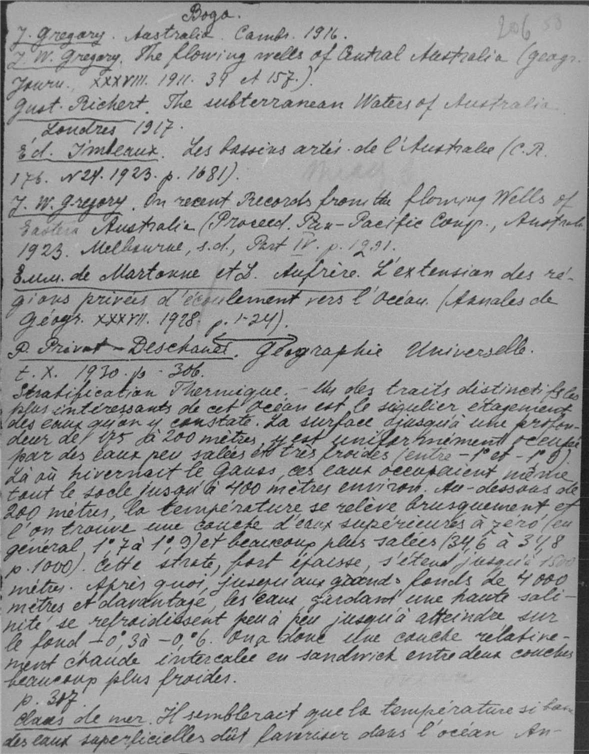 Boga.
206 58
J. Gregory. Australia. Cambr. 1916.
J. W. Gregory. The flowing wells of Central Australia (Geogr.
Journ. XXXVIII. 1911. 34 et 157.)
Gust. Richert. The subterranean Waters of Australia.
Londres 1917.
Ed. Imbeaux. Les bassins artés. de l'Australie (C.R.
176. N24. 1923. p. 1681).
J. W. Gregory. On recent Records from the flowing Wells of
Eastern Australia (Proceed. Pan-Pacific Comp., Austral
1923. Melbourne, s.d., Part IV. p. 1291.
Emm. de Martonne et L. Aufrère. L'extension des ré-
gions privées d'écoulement vers l'Océan. (Annales de
Géogr. XXXVII. 1928, p. 1-24).
P. Privat-Deschanel. Géographie Universelle.
t. X. 1930. p - 306.
Stratification Thermique. - Un des traits distinctifs les
plus intéressants de cet Océan est le singulier étagement
des eaux qu'on y constate. La surface jusqu'à une profon-
deur de 175 à 200 mètres, y est uniformément occupée
par des eaux peu salées et très froides (entre -1° et -1°,9).
Là où hivernait le Gauss, ces eaux occupaient même
tout le socle jusqu'à 400 mètres environ. Au-dessous de
200 mètres, la température se relève brusquement et
l'on trouve une couche d'eaux supérieures à zéro (en
général, 1°,7 à 1°,9) et beaucoup plus salées (34,6 à 34,8
p. 1000). Cette strate, fort épaisse, s'étend jusqu'à 1500
mètres. Après quoi, jusqu'aux grands fonds de 4000
mètres et davantage, les eaux gardant une haute sali-
nité se refroidissent peu à peu jusqu'à atteindre sur
le fond -0°,3 à -0°,6. On a donc une couche relative-
ment chaude intercalée en sandwich entre deux couches
beaucoup plus froides.
p. 307
Glaces de mer. Il semblerait que la température si basse
des eaux superficielles dût favoriser dans l'océan An-